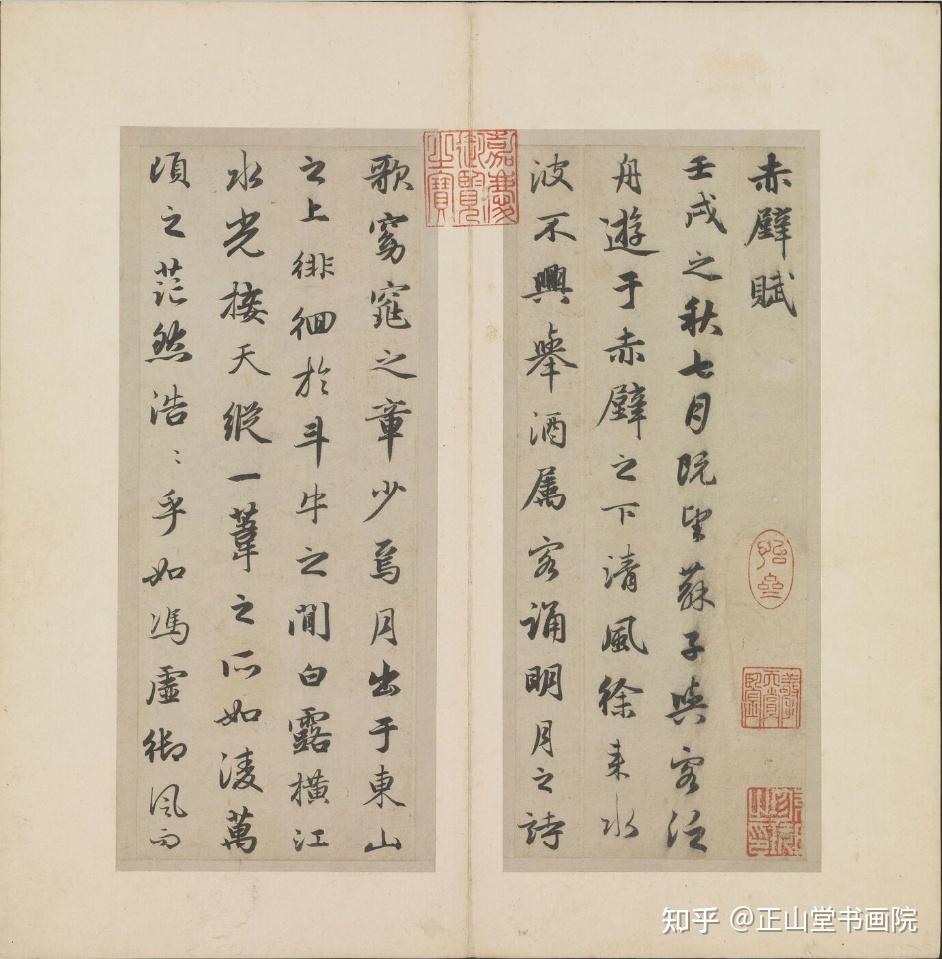 赤壁賦
壬戌之秋七月既望蘇子與客泛
舟遊于赤壁之下清風徐来水
波不興舉酒属客誦明月之詩
歌窈窕之章少焉月出于東山
之上徘徊於斗牛之間白露橫江
水光接天縱一葦之所如淩萬
頃之茫然浩〻乎如馮虛御风而
嘉慶御覽之寶
知乎 @正山堂书画院